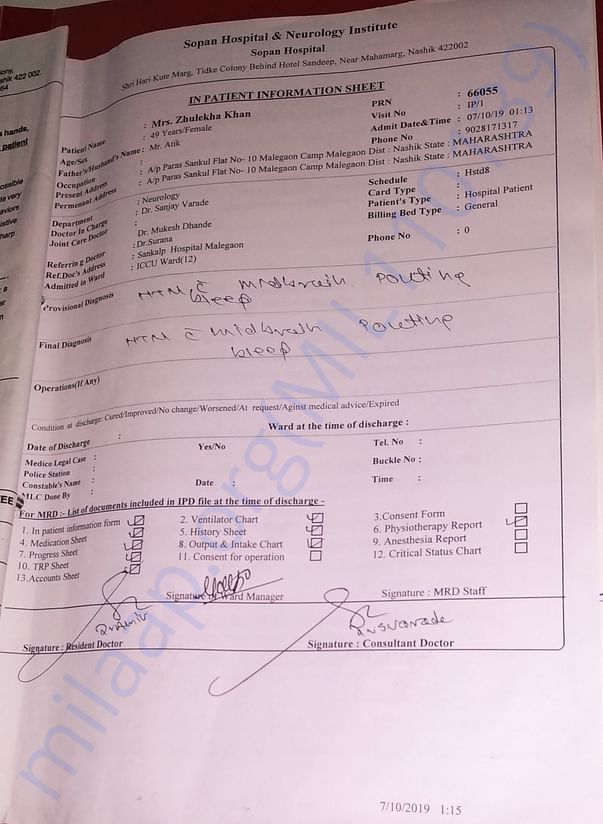 Sopan Hospital & Neurology Institute
Sopan Hospital
Shri Hari Kute Marg, Tidke Colony Behind Hotel Sandeep, Near Mahamarg, Nashik 422002
IN PATIENT INFORMATION SHEET
Patient Name : Mrs. Zhulekha Khan PRN : 66055
Age/Sex : 49 Years/Female Visit No : IP/1
Father's/Husband's Name : Mr. Atik Admit Date&Time : 07/10/19 01:13
Occupation : Phone No : 9028171317
Present Address : A/p Paras Sankul Flat No- 10 Malegaon Camp Malegaon Dist : Nashik State : MAHARASHTRA
Permenant Address : A/p Paras Sankul Flat No- 10 Malegaon Camp Malegaon Dist : Nashik State : MAHARASHTRA
Department : Neurology Schedule : Hstd8
Doctor In Charge : Dr. Sanjay Varade Card Type :
Joint Care Doctor Dr. Mukesh Dhande Patient's Type : Hospital Patient
Referring Doctor :Dr.Surana Billing Bed Type : General
Ref.Doc's Address : Sankalp Hospital Malegaon Phone No : 0
Admitted in Ward : ICCU Ward(12)
Provisional Diagnosis HTN c̄ midbrain pontine
bleep
Final Diagnosis HTN c̄ midbrain pontine
bleep
Operations(If Any)
Condition at discharge: Cured/Improved/No change/Worsened/At request/Aginst medical advice/Expired
Date of Discharge : Ward at the time of discharge :
Medico Legal Case : Yes/No Tel. No :
Police Station : Buckle No :
Constable's Name : Date : Time :
MLC Done By :
For MRD :- List of documents included in IPD file at the time of discharge -
1. In patient information form 2. Ventilator Chart 3.Consent Form
4. Medication Sheet 5. History Sheet 6. Physiotherapy Report
7. Progress Sheet 8. Output & Intake Chart 9. Anesthesia Report
10. TRP Sheet 11. Consent for operation 12. Critical Status Chart
13.Accounts Sheet
Signature of Ward Manager Signature : MRD Staff
Signature : Resident Doctor Signature : Consultant Doctor
7/10/2019 1:15